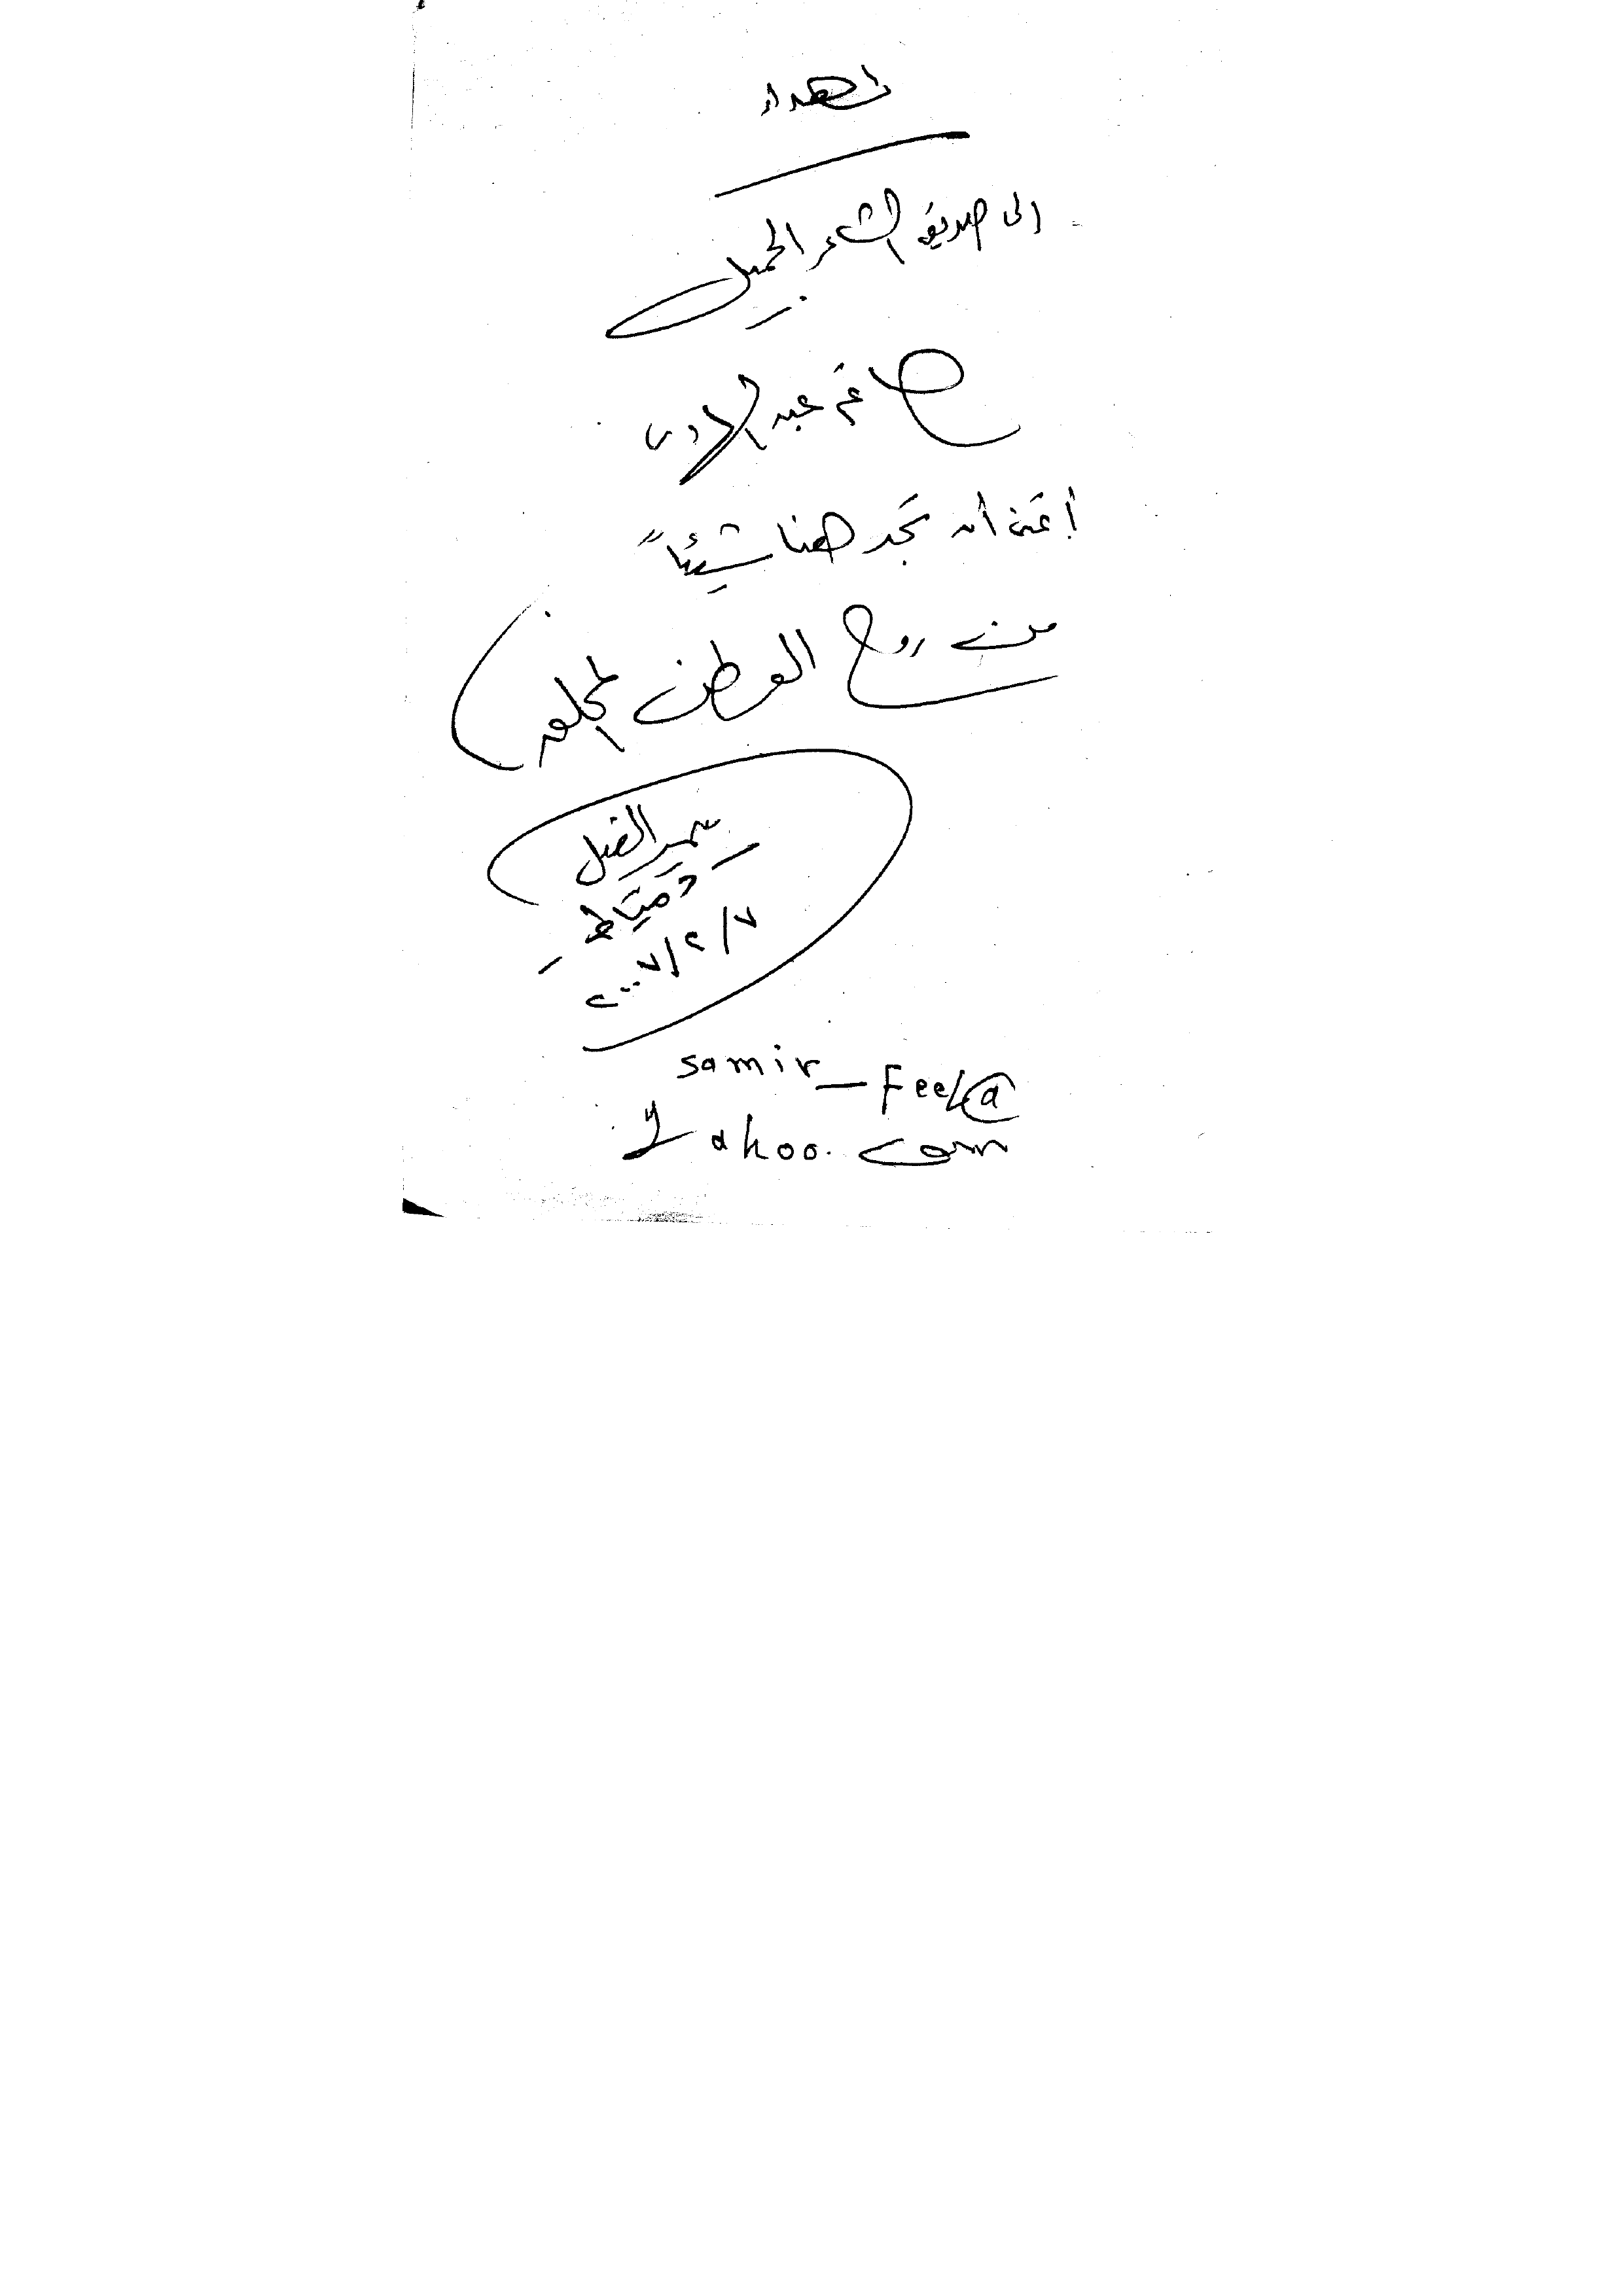 إهداء
إلى صديقى الشاعر الجميل
عبد الهادى
أتمنى أن تجد هنا شيئاً
من روح الوطن
سمير الفيل
- دمياط -
٧/٢/٢٠٠٧
samir_Feel@
Yahoo.com